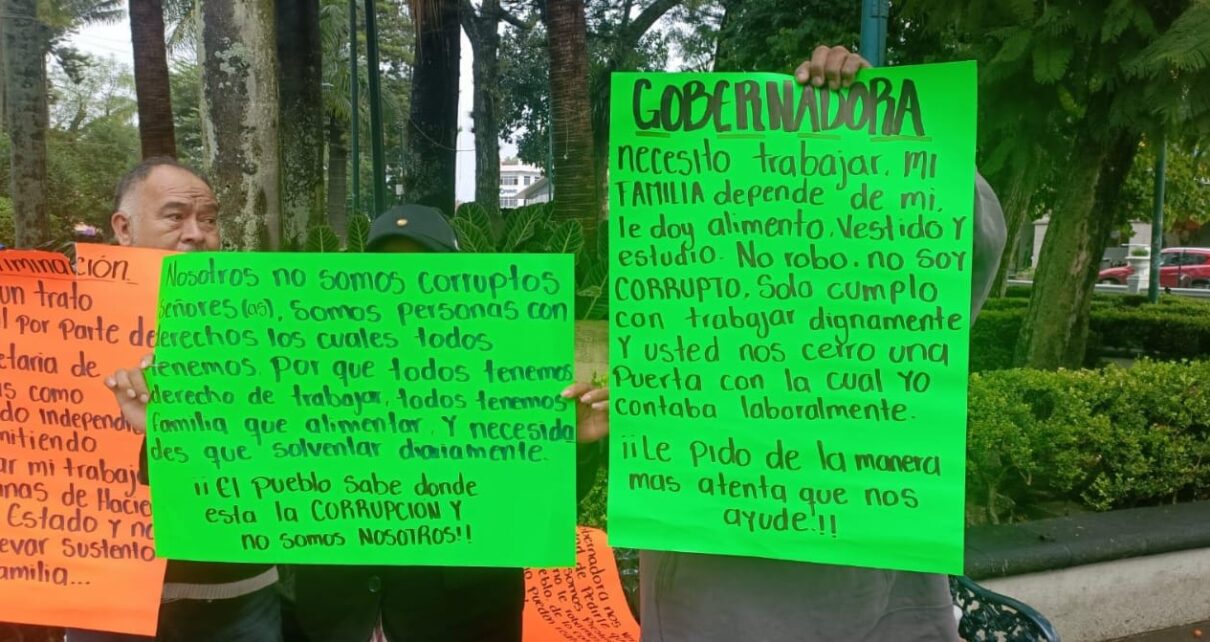 minación.
un trato
l por parte de
etaria de
as como
do independi
mitiendo
ar mi trabajo
inas de Hacie
Estado y no
evar sustento
amilia...
Nosotros no somos corruptos
señores(as), somos personas con
derechos los cuales todos
tenemos. Por que todos tenemos
derecho de trabajar, todos tenemos
familia que alimentar. Y necesida
des que solventar diariamente.
¡¡El pueblo sabe donde
esta la CORRUPCION Y
no somos NOSOTROS!!
GOBERNADORA
necesito trabajar. MI
FAMILIA depende de mi,
le doy alimento. Vestido Y
estudio. No robo. no soy
CORRUPTO. Solo cumplo
con trabajar dignamente
Y usted nos cerro una
Puerta con la cual YO
contaba laboralmente.
¡¡Le Pido de la manera
mas atenta que nos
ayude.!!
bernadora nos
de Pedirle
somos
Pueden